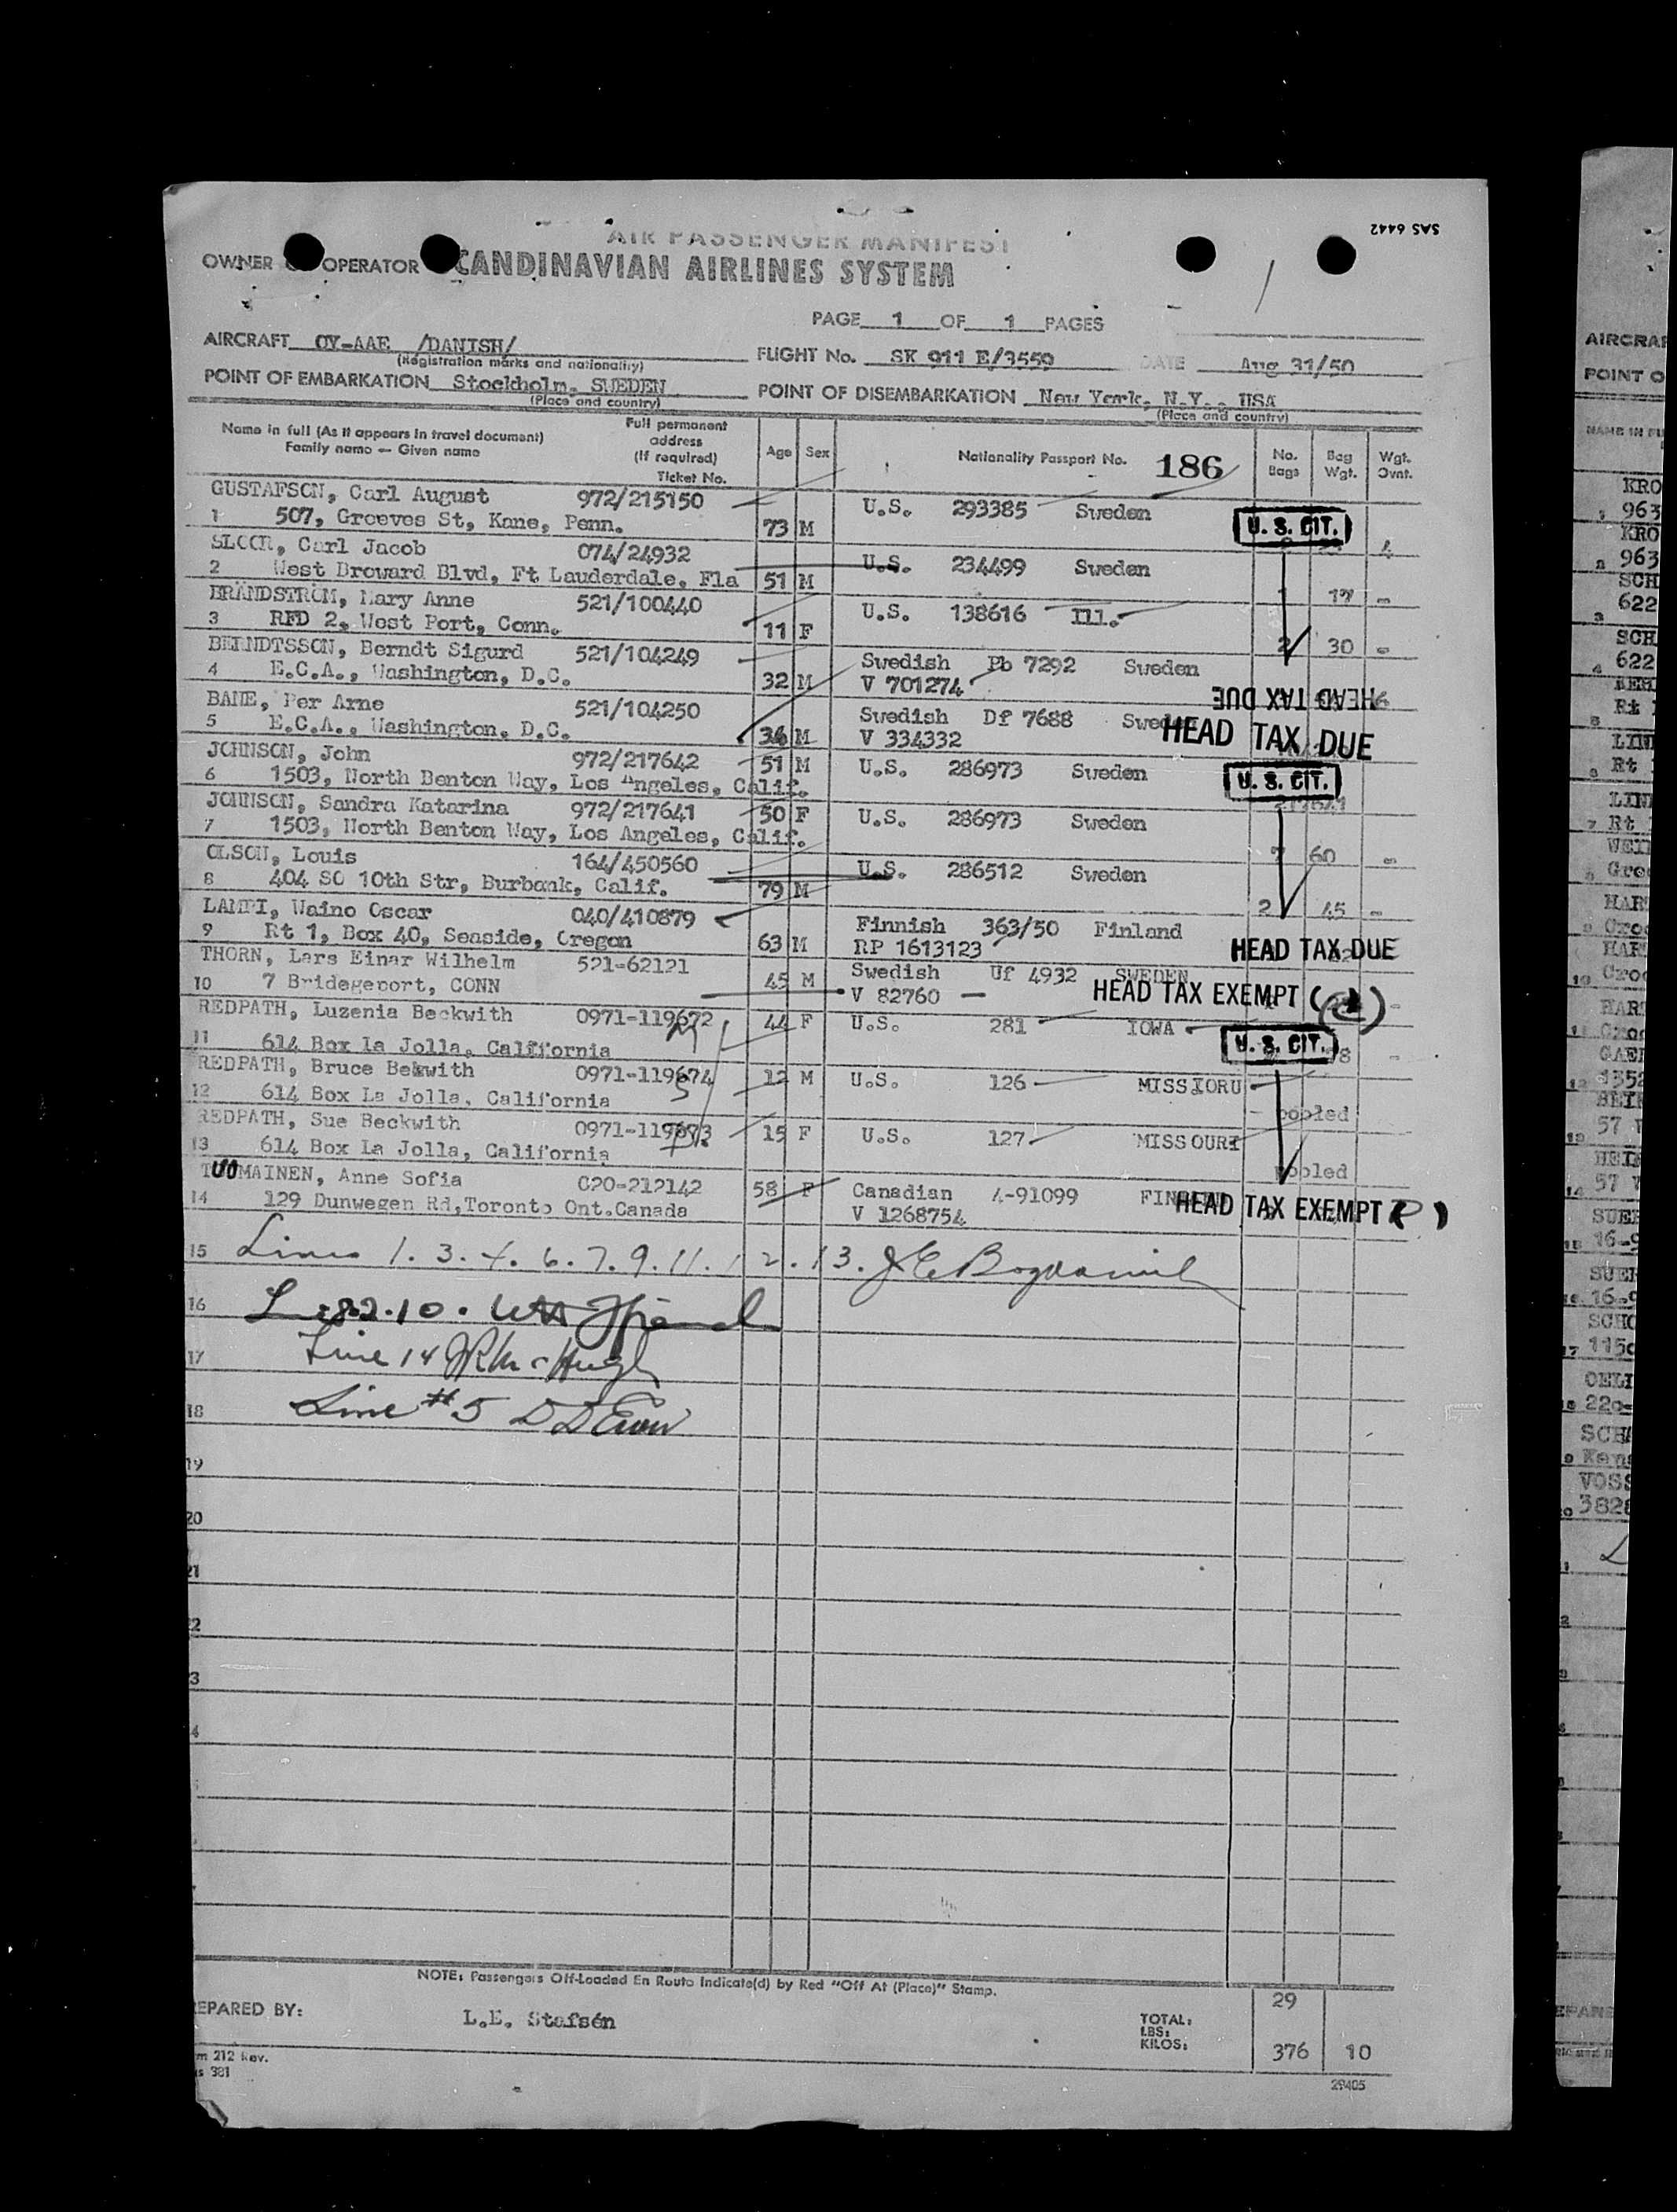 SAS 6442
AIR PASSENGER MANIFEST
OWNER OPERATOR SCANDINAVIAN AIRLINES SYSTEM
PAGE 1 OF 1 PAGES
AIRCRAFT OY-AAE /DANISH/ FLIGHT No. SK 911 E/3559 DATE Aug 31/50
(Registration marks and nationality)
POINT OF EMBARKATION Stockholm, SWEDEN POINT OF DISEMBARKATION New York, N.Y., USA
(Place and country) (Place and country)
Name in full (As it appears in travel document) Family name — Given name Full permanent address (If required) Ticket No. Age Sex Nationality Passport No. 186 No. Bags Bag Wgt. Wgt. Ovnt.
GUSTAFSON, Carl August 972/215150 U.S. 293385 Sweden
1 507, Greeves St, Kane, Penn. 73 M U. S. CIT. 4
SLOOR, Carl Jacob 074/24932 U.S. 234499 Sweden
2 West Broward Blvd, Ft Lauderdale, Fla 51 M 1 17 -
BRANDSTROM, Mary Anne 521/100440 U.S. 138616 Ill.
3 RFD 2, West Port, Conn. 11 F 2 30 -
BERNDTSSON, Berndt Sigurd 521/104249 Swedish Pb 7292 Sweden
4 E.C.A., Washington, D.C. 32 M V 701274 HEAD TAX DUE
BANE, Per Arne 521/104250 Swedish Df 7688 Sweden
5 E.C.A., Washington, D.C. 36 M V 334332 HEAD TAX DUE
JOHNSON, John 972/217642 51 M U.S. 286973 Sweden
6 1503, North Benton Way, Los Angeles, Calif. U. S. CIT.
JOHNSON, Sandra Katarina 972/217641 50 F U.S. 286973 Sweden
7 1503, North Benton Way, Los Angeles, Calif. 7 60 -
OLSON, Louis 164/450560 U.S. 286512 Sweden
8 404 SO 10th Str, Burbank, Calif. 79 M 2 45 -
LAMPI, Waino Oscar 040/410879 Finnish 363/50 Finland
9 Rt 1, Box 40, Seaside, Oregon 63 M RP 1613123 HEAD TAX DUE
THORN, Lars Einar Wilhelm 521-62121 Swedish Uf 4932 SWEDEN
10 7 Bridegeport, CONN 45 M V 82760 HEAD TAX EXEMPT
REDPATH, Luzenia Beckwith 0971-119672 44 F U.S. 281 IOWA
11 614 Box la Jolla, California U. S. CIT. -
REDPATH, Bruce Bekwith 0971-119674 12 M U.S. 126 MISSIORU
12 614 Box La Jolla, California - pooled
REDPATH, Sue Beckwith 0971-119673 15 F U.S. 127 MISSOURI
13 614 Box La Jolla, California pooled
TUOMAINEN, Anne Sofia 020-212142 58 F Canadian 4-91099
14 129 Dunwegen Rd,Toronto Ont.Canada V 1268754 HEAD TAX EXEMPT (P)
15 Lines 1. 3. 4. 6. 7. 9. 11. 12. 13.
16
17 Line 14 JR McHugh
18 Line #5
19
20
21
NOTE: Passengers Off-Loaded En Route Indicate(d) by Red "Off At (Place)" Stamp.
PREPARED BY: L.E. Stafsén TOTAL: LBS: KILOS: 29
376 10
212 Rev.
381
29405